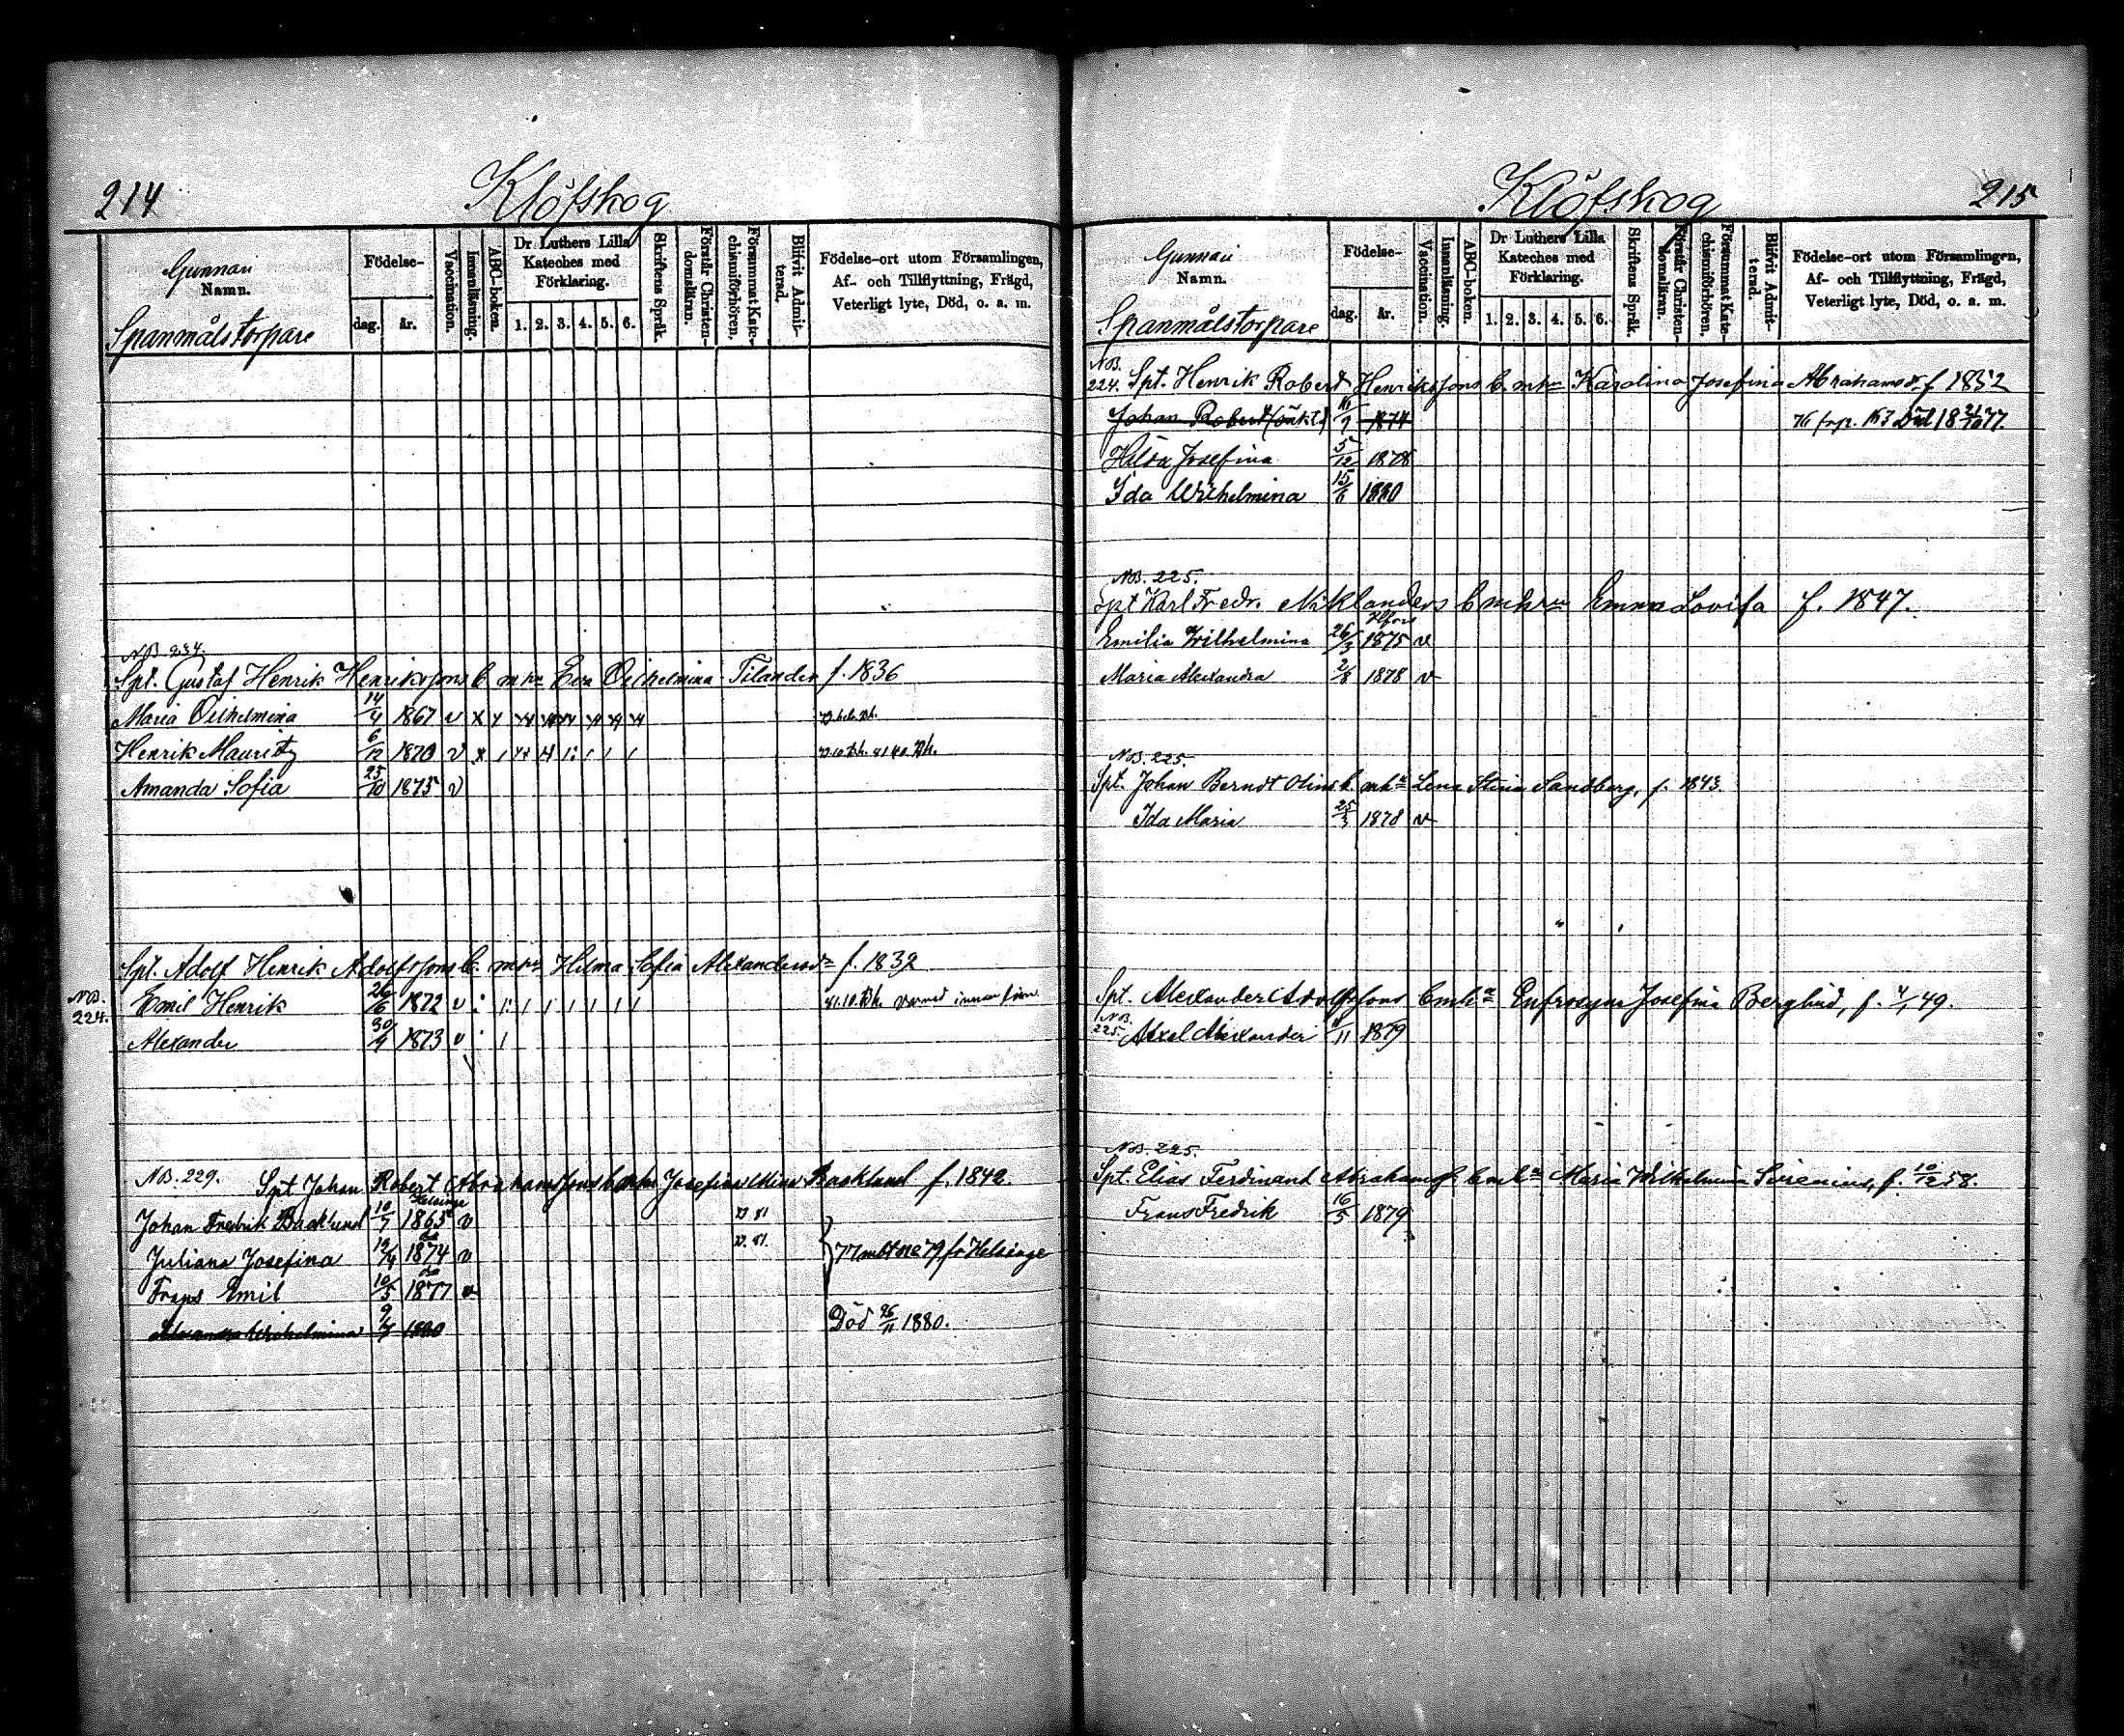 214
Klöfskog
Gunnari
Namn.
Spanmålstorpare
Födelse-
dag. år.
Vaccination.
Innanläsning.
ABC-boken.
Dr Luthers Lilla
Kateches med
Förklaring.
1. 2. 3. 4. 5. 6.
Skriftens Språk.
Förstår Christen-
domsläran.
Försummat Kate-
chismiförhören.
Blifvit Admit-
terad.
Födelse-ort utom Församlingen,
Af- och Tillflyttning, Frägd,
Veterligt lyte, Död, o. a. m.
NB 234.
Spt. Gustaf Henrik Henrikssons b. m hu Eva Vilhelmina Tilander f. 1836
Maria Vilhelmina 14/4 1867 v x
Henrik Mauritz 6/12 1870 v x
Amanda Sofia 25/10 1875 v
Spt. Adolf Henrik Adolfssons b. m hu Hilma Sofia Alexandersdr f. 1832
NB. 224.
Emil Henrik 26/6 1872 v
Alexander 30/4 1873 v
NB. 229. Spt Johan Robert Abrahamssons b m hu Josefina Mina Backlund f. 1842.
Helsinge
Johan Fredrik Backlund 10/7 1865 v
Juliana Josefina 19/4 1874 v
77 79 fr Helsinge
Frans Emil 10/5 1877 v
Wilhelmina 9/7 1880 Död 26/11 1880.
215
Klöfskog
Gunnari
Namn.
Spanmålstorpare
Födelse-
dag. år.
Vaccination.
Innanläsning.
ABC-boken.
Dr Luthers Lilla
Kateches med
Förklaring.
1. 2. 3. 4. 5. 6.
Skriftens Språk.
Förstår Christen-
domsläran.
Försummat Kate-
chismiförhören.
Blifvit Admit-
terad.
Födelse-ort utom Församlingen,
Af- och Tillflyttning, Frägd,
Veterligt lyte, Död, o. a. m.
NB.
224. Spt. Henrik Robert Henrikssons b. m hu Karolina Josefina Abrahamsdr f 1852
Johan Robert 1874 76 frp. 163 Död 18 21/10 77.
Hilda Josefina 5/12 1878
Ida Wilhelmina 15/6 1880
NB. 225.
Spt Karl Fredr. Niklanders b m hu Emma Lovisa f. 1847.
Hfors
Emilia Wilhelmina 26/3 1875 v
Maria Alexandra 2/8 1878 v
NB. 225.
Spt. Johan Berndt Olins b. m hu Lena Stina Sandberg, f. 1843.
Ida Maria 25/3 1878 v
Spt. Alexander Adolfssons b m hu Eufrosyne Josefina Berglund, f. 4/1 49.
NB.
225. Axel Alexander 11 1879
NB. 225.
Spt. Elias Ferdinand Abrahamss. b m hu Maria Wilhelmina Sirenius, f. 10/12 58.
Frans Fredrik 16/5 1879